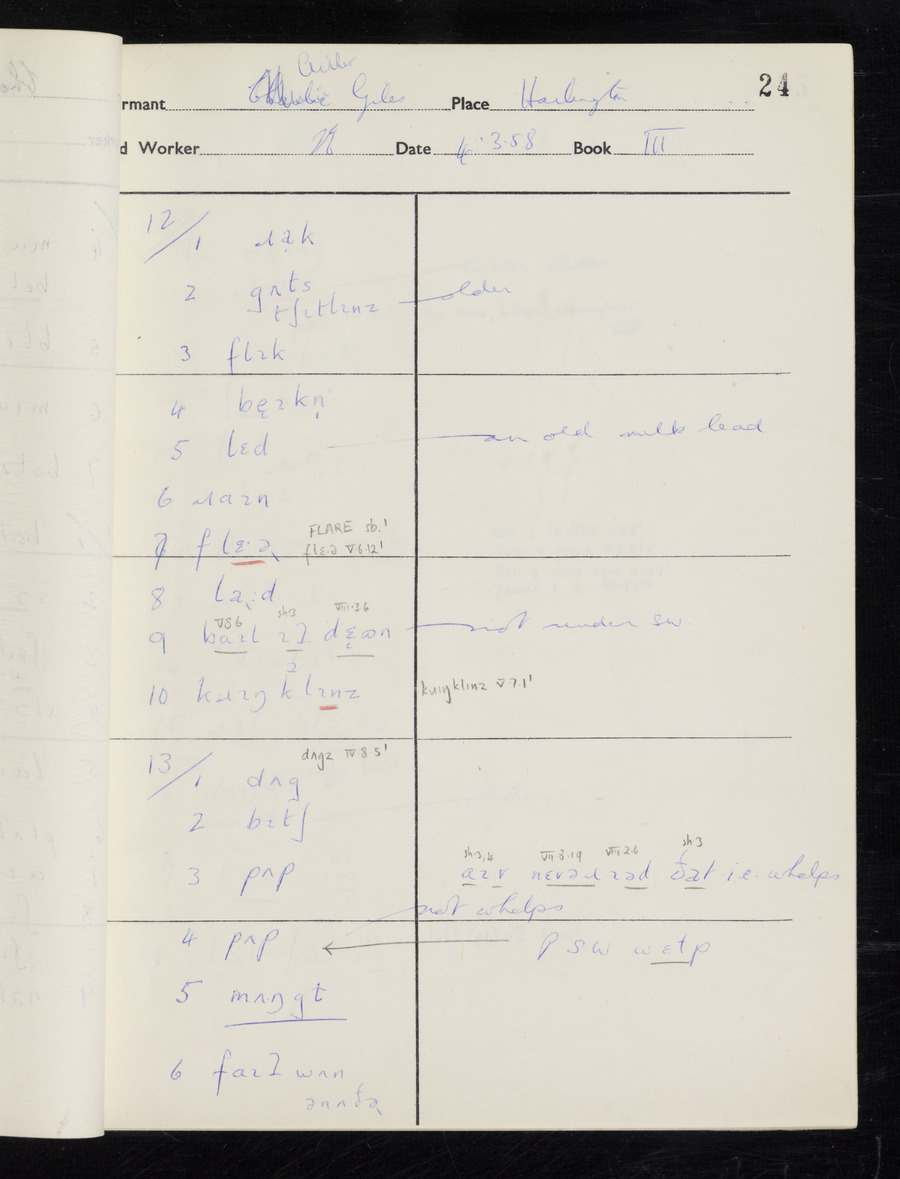 24
Giles Place Harlington
Worker Date 4.3.58 Book III
12/1 ɹạk
2 gʌts
tʃɪtlɪnz older
3 flɪk
4 bęɪkn̩
5 lɛd an old milk lead
6 ɹaɪn
FLARE sb.¹
7 flɛ·ə flɛə V.6.12¹
8 la:d
V.8.6 sh.3 VIII.3.6
9 baɪl ɪʔ dɛʊn not render sw
10 kɹɪŋklɪnz kɹɪŋklɪnz V.7.1¹
dʌgz IV.8.5¹
13/1 dʌg
2 bɪtʃ
sh.3,4 VII.3.19 VIII.2.6 sh.3
3 pʌp aɪv nɛvəɹ ɪəd ðat i.e. whelps
not whelps
4 pʌp P SW wɛtp
5 mʌŋgɪ
6 faɪʔ wʌn
ənʌðə